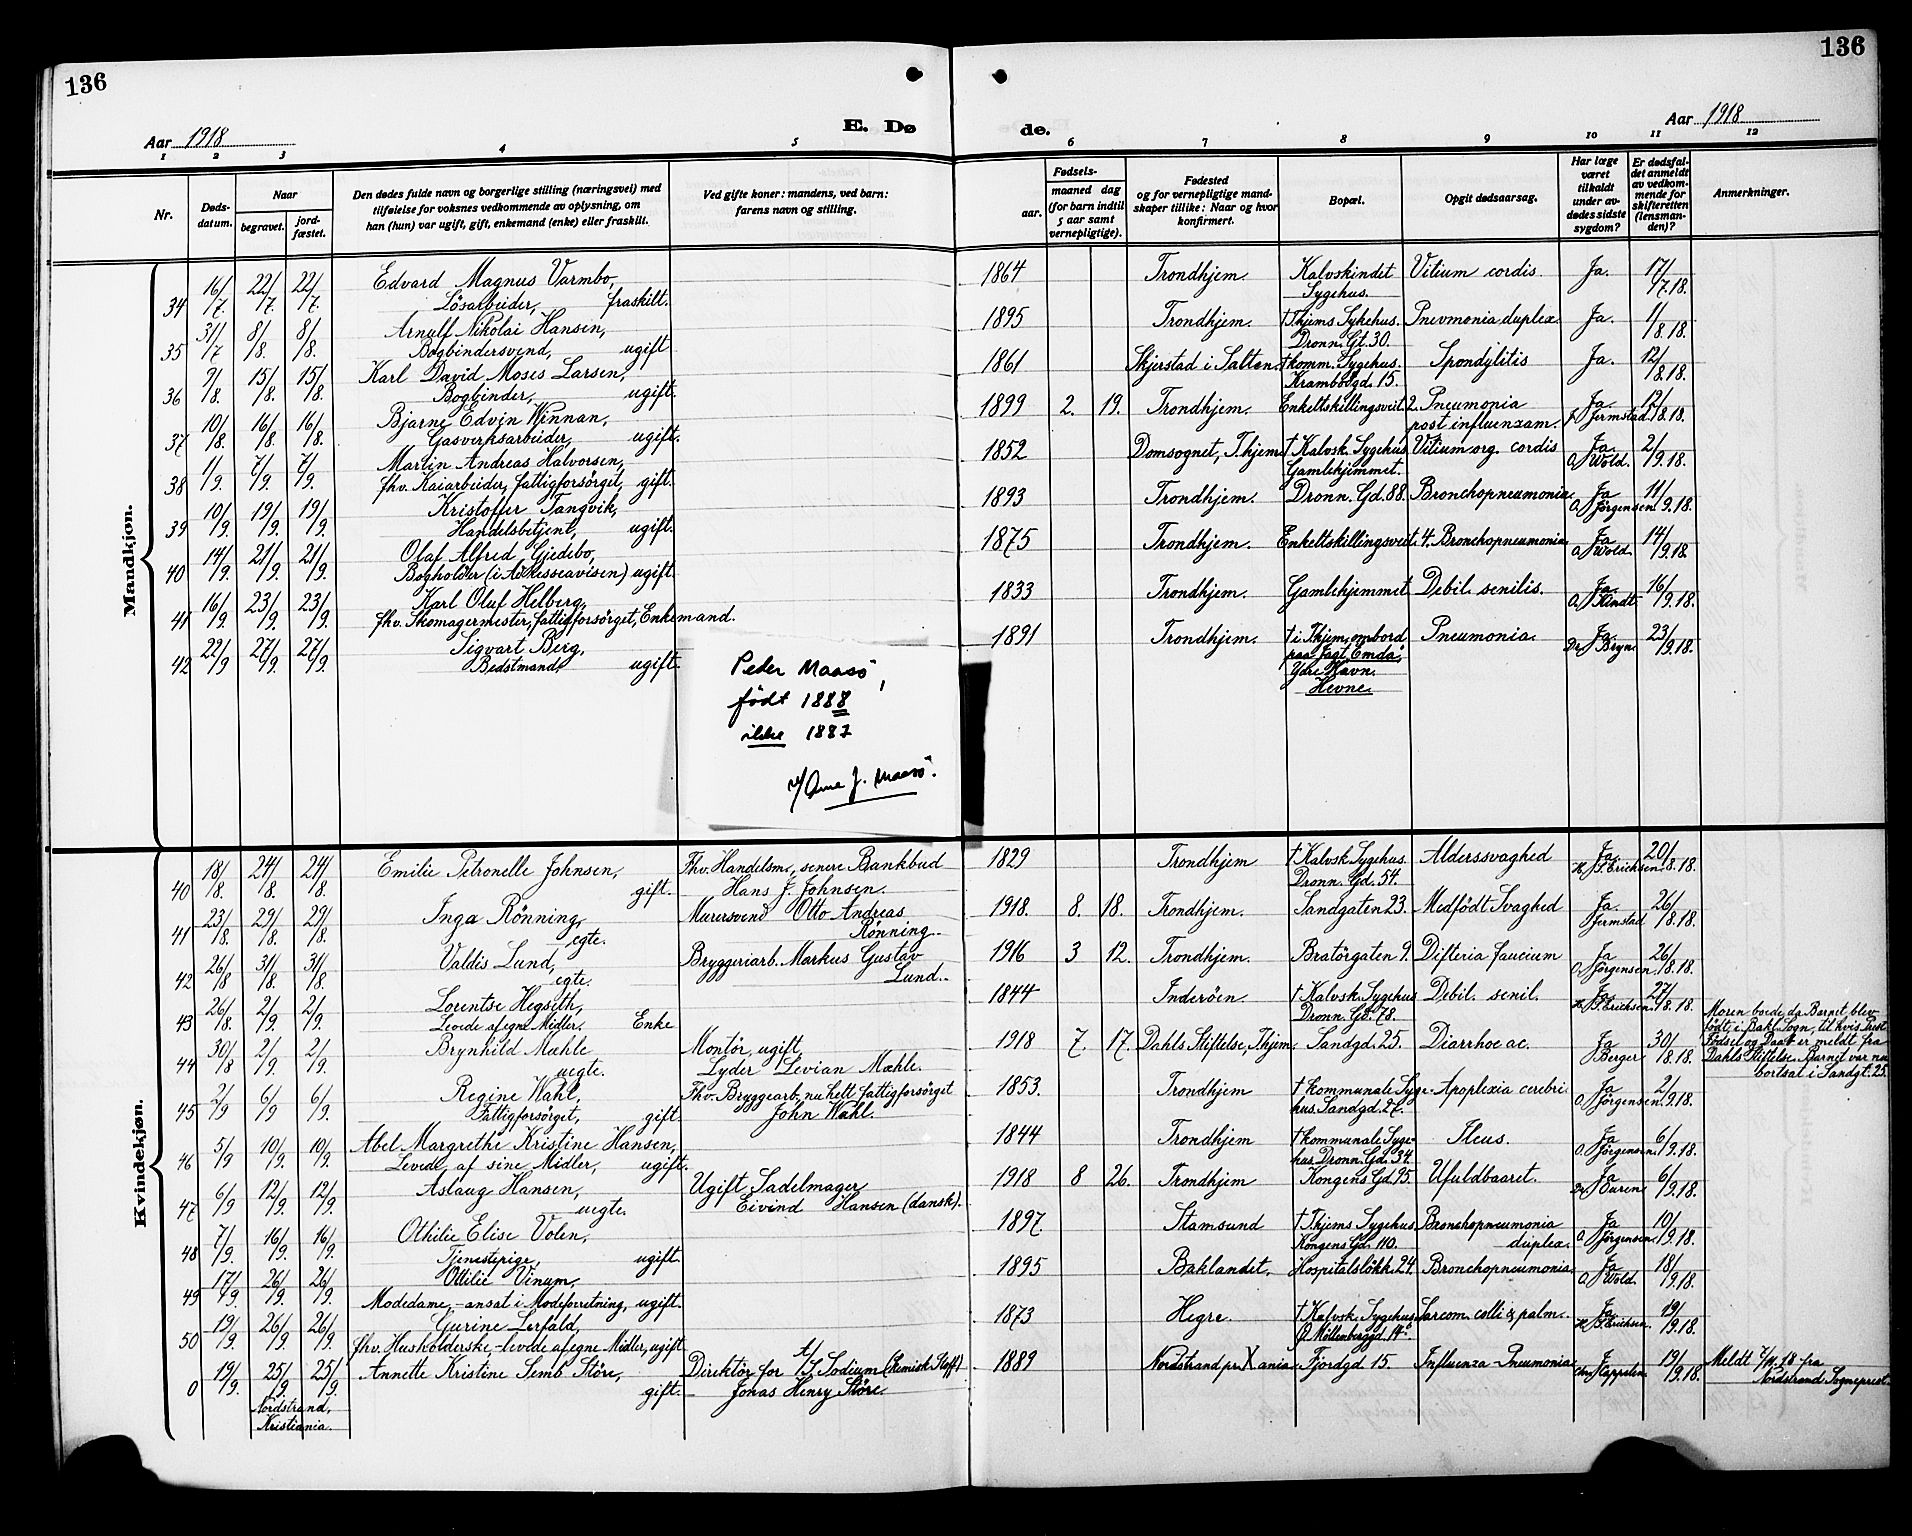 136
136
Aar 1918
E. Dø
de.
Aar 1918
1 2 3 4 5 6 7 8 9 10 11 12
Nr.
Døds-
datum.
Naar
begravet.
jord-
fæstet.
Den dødes fulde navn og borgerlige stilling (næringsvei) med
tilføielse for voksnes vedkommende av oplysning, om
han (hun) var ugift, gift, enkemand (enke) eller fraskilt.
Ved gifte koner: mandens, ved barn:
farens navn og stilling.
Fødsels-
aar.
maaned dag
(for barn indtil
5 aar samt
vernepligtige).
Fødested
og for vernepligtige mand-
skaper tillike: Naar og hvor
konfirmert.
Bopæl.
Opgit dødsaarsag.
Har læge
været
tilkaldt
under av-
dødes sidste
sygdom?
Er dødsfal-
det anmeldt
av vedkom-
mende for
skifteretten
(lensman-
den)?
Anmerkninger.
Mandkjøn.
34 16/7. 22/7. 22/7. Edvard Magnus Varmbo, 1864 Trondhjem. Kalvskindet Vitium cordis. Ja. 17/7.18.
Lösarbeider, fraskilt. Sygehus.
35 31/7 8/8. 8/8. Arnulf Nikolai Hansen, 1895 Trondhjem. † Thjems Sykehus. Pnevmonia duplex. Ja. 1/8.18.
Bogbindersvend, ugift Dronn. Gt. 30.
36 9/8. 15/8. 15/8. Karl David Moses Larsen, 1861 Skjerstad i Salten. † komm. Sygehus. Spondylitis Ja. 12/8.18.
Bogbinder, ugift. Krambodgd. 15.
37 10/8. 16/8. 16/8. Bjarne Edvin Winnan, 1899 2. 19. Trondhjem. Enkeltskillingsveit. 2. Pneumonia Ja. 12/8.18.
Gasverksarbeider, ugift. post influenzam. Jermstad.
38 1/9. 7/9. 7/9. Martin Andreas Halvorsen, 1852 Domsognet, T.hjem † Kalvsk. Sygehus Vitium org. cordis Ja. 2/9.18.
fhv. Kaiarbeider, fattigforsörget, gift. Gamlehjemmet. O. Wold.
39 10/9. 19/9. 19/9. Kristoffer Tangvik, 1893 Trondhjem. Dronn. Gd. 88. Bronchopneumonia. Ja 11/9.18.
Handelsbetjent, ugift. O. Jörgensen.
40 14/9. 21/9. 21/9. Olaf Alfred Gjedebo, 1875 Trondhjem. Enkeltskillingsveit. 4. Bronchopneumonia. Ja 14/9.18
Bogholder (i Adresseavisen) ugift. O. Wold.
41 16/9. 23/9. 23/9. Karl Oluf Helberg, 1833 Trondhjem. Gamlehjemmet Debil. senilis. Ja. 16/9.18.
fhv. Skomagermester, fattigforsörget, Enkemand. Kindt
42 22/9 27/9. 27/9. Sigvart Berg, 1891 Trondhjem. † i Thjem, ombord Pneumonia. Ja. 23/9.18.
Bedstmand, ugift. paa Jagt "Emda", Dr. Bryn.
Ydre Havn.
Hevne.
Peder Maasö,
födt 1888
ikke 1887
v/ Arne J. Maasö.
Kvindekjøn.
40 18/8. 24/8. 24/8. Emilie Petronelle Johnsen, Fhv. Handelsm., senere Bankbud 1829 Trondhjem † Kalvsk. Sygehus. Alderssvaghed Ja. 20/8.18.
gift. Hans J. Johnsen. Dronn. Gd. 54. Erichsen.
41 23/8. 29/8. 29/8. Inga Rönning, Murersvend Otto Andreas 1918. 8. 18. Trondhjem. Sandgaten 23. Medfödt Svaghed Ja. 26/8.18.
egte. Rönning. Jermstad
42 26/8 31/8. 31/8. Valdis Lund, Bryggeriarb. Markus Gustav 1916 3 12. Trondhjem. Bratörgaten 9. Difteria faucium Ja 26/8.18.
egte. Lund. O. Jörgensen.
43 26/8. 2/9. 2/9. Lorentse Hegseth, 1844 Inderöen. † Kalvsk. Sygehus Debil. senil. Ja 27/8.18.
Levede af egne Midler. Enke Dronn. Gd. 78. Erichsen.
44 30/8 2/9. 2/9. Brynhild Mæhle Montör, ugift 1918 7. 17. Dahls Stiftelse, Thjem. Sandgd. 25. Diarrhoe ac. Ja 30/8.18.
uegte. Lyder Levian Mæhle. Berger
Moren boede da Barnet blev
födt, i Bakl. Sogn, til hvis Prest
Födsel og Daab er meldt, fra
Dahls Stiftelse. Barnet var nu
bortsat i Sandgt. 25.
45 2/9 6/9 6/9. Regine Wahl, Fhv. Bryggearb., nu helt fattigforsörget 1853. Trondhjem † kommunale Syge- Apoplexia cerebri Ja 2/9.18.
Fattigforsörget, gift. John Wahl. hus. Sandgd. 27. O. Jörgensen.
46 5/9 10/9. 10/9. Abel Margrethe Kristine Hansen, 1844 Trondhjem † kommunale Syge- Ileus. Ja 6/9.18.
Levede af sine Midler, ugift. hus. Dronn. Gd. 34. O. Jörgensen.
47 6/9 12/9. 12/9. Aslaug Hansen, Ugift Sadelmager 1918 8 26. Trondhjem Kongens Gd. 95. Ufuldbaaret. Ja 6/9.18.
uegte. Eivind Hansen (dansk). Dr. Ouren
48 7/9. 16/9. 16/9. Othilie Elise Volen, 1897. Stamsund † Thjems Sygehus. Bronchopneumonia Ja 10/9.18.
Tjenestepige, ugift. Kongens Gd. 110. duplex. O. Jörgensen.
49 17/9. 26/9. 26/9. Ottilie Vinum, 1895 Baklandet. Hospitalslökk. 24. Bronchopneumonia. Ja 18/9.18.
Modedame, - ansat i Modeforretning, ugift. O. Wold.
50 19/9. 26/9. 26/9. Gurine Lerfald, 1873 Hegre. † Kalvsk. Sygehus. Sarcom. colli & palm. Ja. 19/9.18.
fhv. Husholderske, - levede af egne Midler, ugift. Ø. Möllenberggd. 14. Erichsen.
0 19/9. 25/9. 25/9. Annette Kristine Semb Störe, Direktör for A/S Sodium (Kemisk Stoff) 1889 Nordstrand pr. Xania. Fjordgd 15. Influenza-Pneumonia Ja 19/9.18. Meldt 7/10.18 fra
gift. Jonas Henry Störe Kappelen Nordstrand Sogneprest.
Nordstrand,
Kristiania.